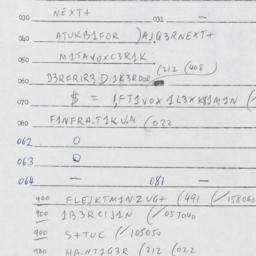 030 NEXT+ 031 —
040 ATUKB1FOR )A1Q3RNEXT+
050 M1TAVOXC3R1K
060 D3RER1R3 D.1K3RDOR (212 (408)
070 $ = 1,FT1VOX1L3XK$1M1N (
080 F1NFRA.T1KU.N (022
062 0
063 0
064 — 081 —
900 FLEJKTM1NZUG+ (491 (✓158060
900 1B3RC1J1N (✓057040
900 S+TUC (✓105050
900 HA.NT1G3R (212 (022